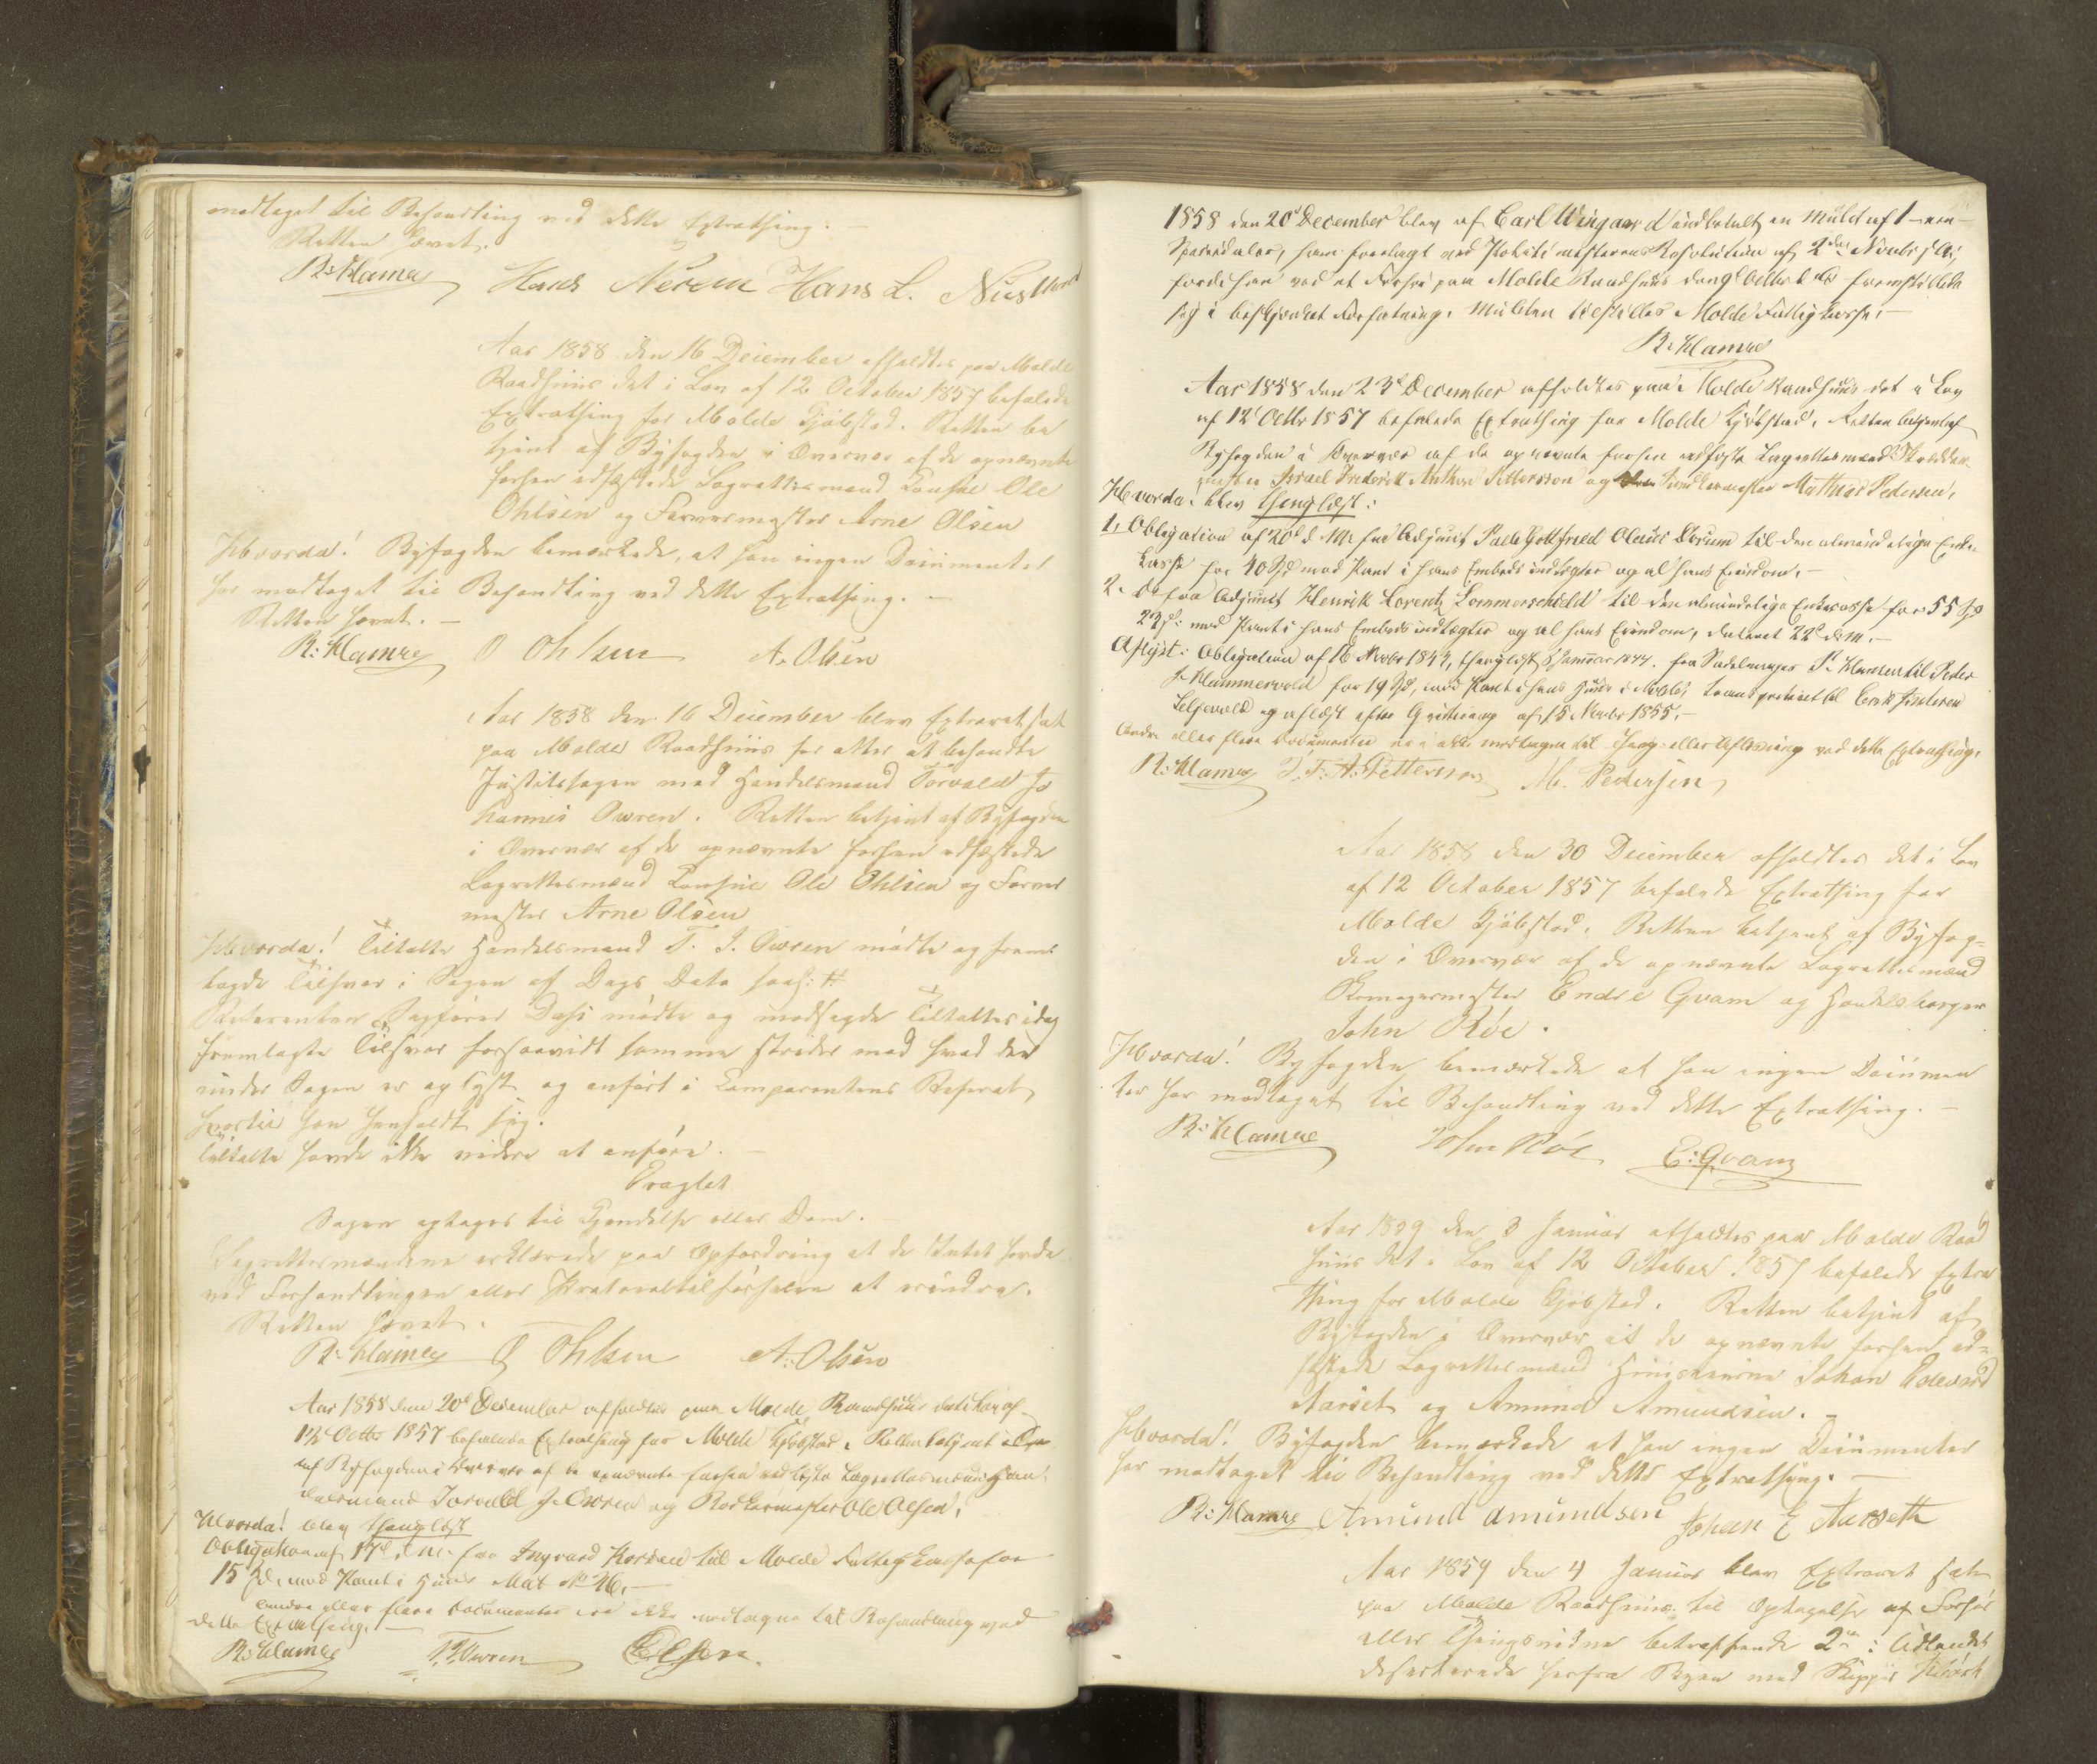 modtaget til Behandling ved dette Extrathing. —
Retten hævet.
R: Klamer Hans Nerem Hans L.
Aar 1858 den 16 December afholdtes paa Molde
Raadhuus det i Lov af 12 October 1857 befalede
Extrathing for Molde Kjøbstad. Retten be
tjent af Byfogden i Overvær af de opnævnte
forhen edfæstede Lagrettesmænd Consul Ole
Ohlsen og Farvermester Arne Olsen
Hvorda! Byfogden bemærkede, at han ingen Documenter
har modtaget til Behandling ved dette Extrathing. —
Retten hævet. —
R: Klamer O Ohlsen A. Olsen
Aar 1858 den 16 December blev Extraret sat
paa Molde Raadhuus for atter at behandle
Justitssagen mod Handelsmand Torvald Jo
hannes Owren. Retten betjent af Byfogden
i Overvær af de opnævnte forhen edfæstede
Lagrettesmænd Consul Ole Ohlsen og Farver
mester Arne Olsen
Hvorda! Tiltalte Handelsmand T. J. Owren mødte og frem
lagde Tilsvar i Sagen af Dags Dato saal: #
Referenten Sagfører Dahl mødte og modsagde Tiltaltes idag
fremlagte Tilsvar forsaavidt samme strider mod hvad der
under Sagen er oplyst og anført i Comparentens Referat
hvortil han henholdt sig.
Tiltalte havde ikke videre at anføre. —
Eragtet
Sagen optages til Kjendelse eller Dom. —
Lagrettesmændene erklærede paa Opfordring at de Intet havde
ved Forhandlingen eller Protocoltilførselen at erindre.
Retten hævet. —
R: Klamer O Ohlsen A: Olsen
Aar 1858 den 20d December afholdtes paa Molde Raadhuus det i Lov af
12 Octbr 1857 befalede Extrathing for Molde Kjøbstad. Retten betjent
af Byfogden i Overvær af de opnævnte forhen edfæstede Lagrettesmænd Han
delsmand Torvald J. Owren og Ole Olsen.
Hvorda! blev thinglæst
Obligation af 17d d. M. fra Ingvard til Molde Fattigkasse for
15 Spd. mod Pant i Huus Mat No 26. —
Andre eller flere Documenter ere ikke modtagne til Behandling ved
dette Extrathing. —
R: Klamer T. J. Owren O Olsen.
1858 den 20d December blev af Carl Wingaard indbetalt en Mulct af 1 — een —
Speciedaler, ham forelagt ved Politimesterens Resolution af 2den
fordi han ved et Forhør paa Molde Raadhuus fremstillede
sig i beskjænket Forfatning. Mulcten tilstilles Molde Fattigkasse. —
R: Klamer
Aar 1858 den 23d December afholdtes paa Molde Raadhuus det i Lov
af 12 Octbr 1857 befalede Extrathing for Molde Kjøbstad. Retten betjent af
Byfogden i Overvær af de opnævnte forhen edfæstede Lagrettesmænd Skrædder
mester Israel Frederik Anthon Pettersson og Mathias Pedersen.
Hvorda blev thinglæst:
1, Obligation af 20d d. M. fra Adjunct Pade Gottfried Olaus Dorum til den almindelige Enke-
Casse for 40 Spd mod Pant i hans Embeds indtægter og al hans Eiendom. —
2. do fra Adjunct Henrik Lorentz Sommerschield til den almindelige Enkecasse for 55 Spd
mod Pant i hans Embedsindtægter og al hans Eiendom, dateret 22d d. M. —
Aflyst: Obligation af 16 Novbr 1843, thinglæst 8 Januar 1844 fra P. Hansen til Peder
for 19 Spd, mod Pant i hans Huus i Molde, transporteret til
og aflæst efter Qvittering af 15 Novbr 1855. —
Andre eller flere Documenter ere ikke modtagne til Thing- eller Aflæsning ved dette Extrathing.
R: Klamer I. F. A. Petterson M. Pedersen
Aar 1858 den 30 December afholdtes det i Lov
af 12 October 1857 befalede Extrathing for
Molde Kjøbstad. Retten betjent af Byfog-
den i Overvær af de opnævnte Lagrettesmænd
Skomagermester Endre Qvam og Handelsborger
John Röe.
Hvorda! Byfogden bemærkede at han ingen Documen
ter har modtaget til Behandling ved dette Extrathing. —
R: Klamer John Röe E: Qvam
Aar 1859 den 3 Januar afholdtes paa Molde Raad
huus det i Lov af 12 October 1857 befalede Extra
thing for Molde Kjøbstad. Retten betjent af
Byfogden i Overvær af de opnævnte forhen ed=
fæstede Lagrettesmænd Huuseierne Johan Edevard
Aarset og Amund Amundsen. —
Hvorda! Byfogden bemærkede at han ingen Documenter
har modtaget til Behandling ved dette Extrathing. —
R: Klamer Amund Amundsen Johan E Aarseth
Aar 1859 den 4 Januar blev Extraret sat
paa Molde Raadhuus til Optagelse af Forhør
eller Thingsvidne betræffende 2de i Udlandet
deserterede herfra Byen med Skipper